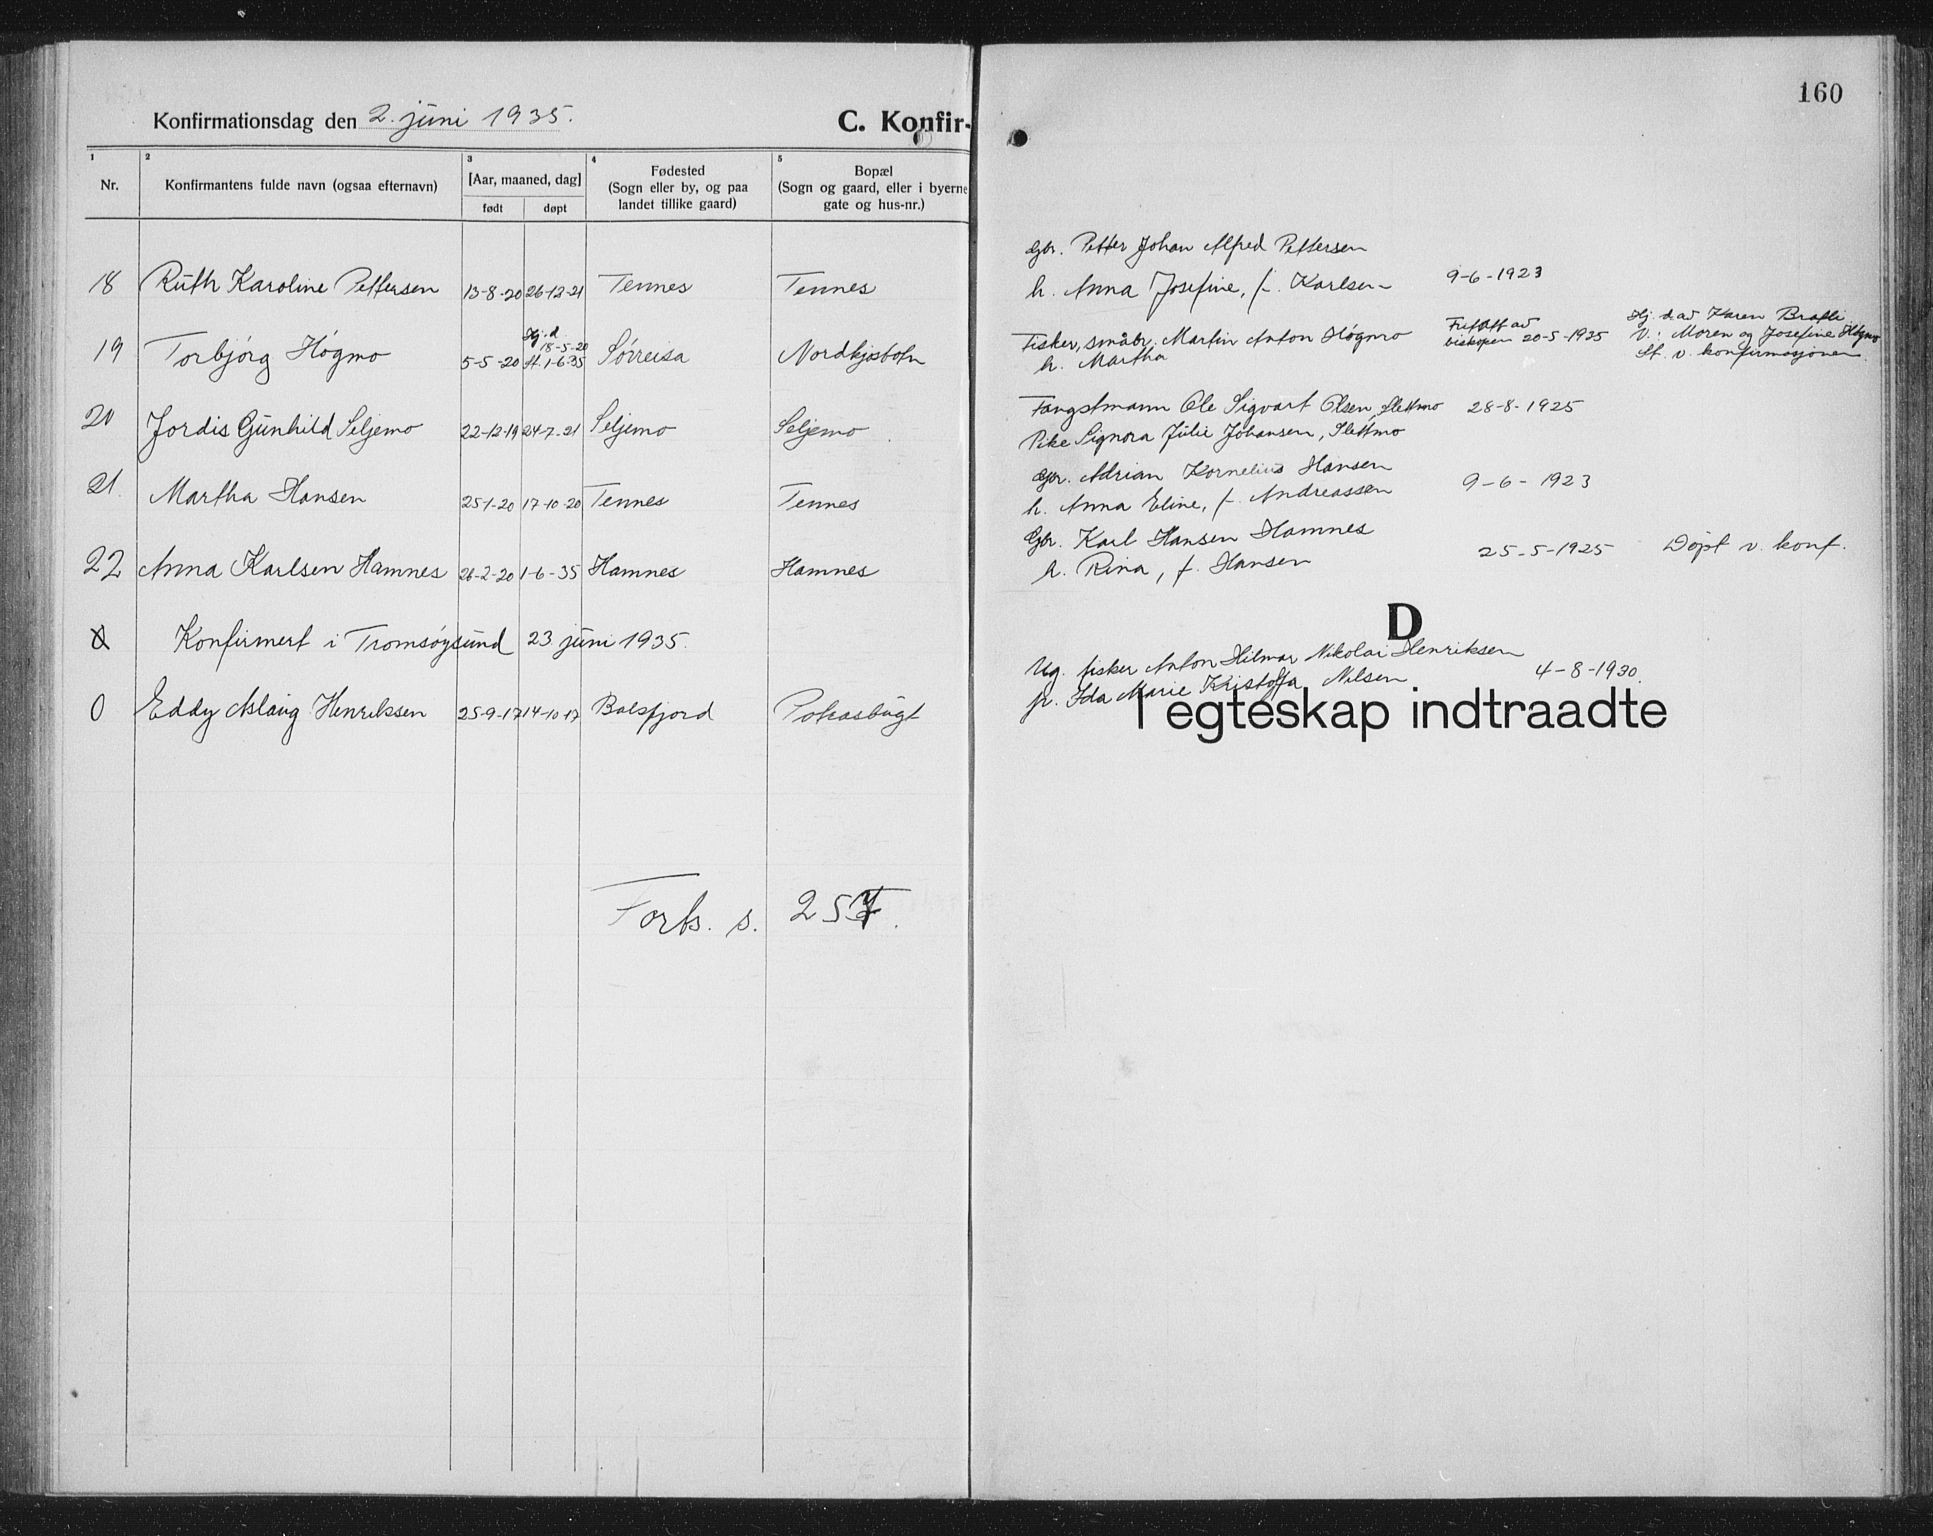 Konfirmationsdag den 2. juni 1935.
C. Konfir-
1 2 3 4 5
Nr. Konfirmantens fulde navn (ogsaa efternavn) [Aar, maaned, dag] født døpt
Fødested
(Sogn eller by, og paa
landet tillike gaard)
Bopæl
(Sogn og gaard, eller i byerne
gate og hus-nr.)
18 Ruth Karoline Pettersen 13-8-20 26-12-21 Tennes Tennes
Hj.d
18-5-20
19 Torbjørg Høgmo 5-5-20 St. 1-6-35 Sørreisa Nordkjosbotn
20 Jordis Gunhild Seljemo 22-12-19 24-7-21 Seljemo Seljemo
21. Martha Hansen 25-1-20 17-10-20 Tennes Tennes
22 Anna Karlsen Hamnes 26-2-20 1-6-35 Hamnes Hamnes
Konfirmert i Tromsøysund 23 juni 1935.
0 Eddy Aslaug Henrikssen 25-9-17 14-10-17 Balsfjord
Forts. s. 257.
160
Gbr. Petter Johan Alfred Pettersen
h. Anna Josefine, f. Karlsen 9-6-1923
Fisker, småbr. Martin Anton Høgmo
h. Martha
Fritatt av
biskopen 20-5-1935
Hj. d. av Karen
V.: Moren og Josefine Høgmo
St. v. konfirmasjonen.
Fangstmann Ole Sigvart Olsen, Slettmo 28-8-1925
Pike Signora Julie Johansen, Slettmo
Gbr. Adrian Kornelius Hansen
h. Anna Eline, f. Andreassen 9-6-1923
Gbr. Karl Hansen Hamnes
h. Rina, f. Hansen 25-5-1925 Døpt v. konf.
D
Ug. fisker Anton Hilmar Nikolai Henriksen
p. Ida Marie Kristoffa Nilsen 4-8-1930.
I egteskap indtraadte